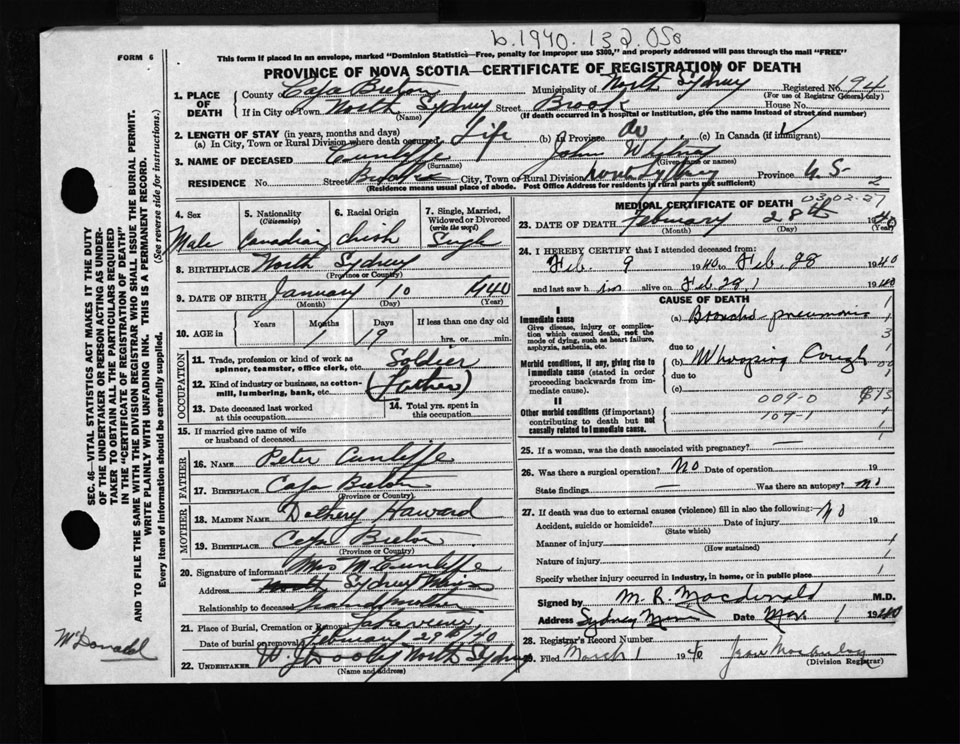 b.1940.132.058
FORM 6
This form if placed in an envelope, marked "Dominion Statistics—Free, penalty for improper use $300," and properly addressed will pass through the mail "FREE"
PROVINCE OF NOVA SCOTIA—CERTIFICATE OF REGISTRATION OF DEATH
1. PLACE OF DEATH
County of Cape Breton Municipality of North Sydney Registered No. 194
(For use of Registrar General only)
If in City or Town North Sydney Street Brook House No.
(Name) (If death occurred in a hospital or institution, give the name instead of street and number)
2. LENGTH OF STAY (in years, months and days)
(a) In City, Town or Rural Division where death occurred Life (b) In Province do (c) In Canada (if immigrant)
3. NAME OF DECEASED Cunliffe John
(Surname) (Given name or names)
RESIDENCE No. Street City, Town or Rural Division North Sydney Province N.S.
(Residence means usual place of abode. Post Office Address for residents in rural parts not sufficient)
2
4. Sex Male
5. Nationality (Citizenship) Canadian
6. Racial Origin Irish
7. Single, Married, Widowed or Divorced (write the word) Single
8. BIRTHPLACE North Sydney
(Province or Country)
9. DATE OF BIRTH January 10 1940
(Month) (Day) (Year)
10. AGE in Years Months Days If less than one day old
1 19 hrs. or min.
OCCUPATION
11. Trade, profession or kind of work as spinner, teamster, office clerk, etc. Soldier
12. Kind of industry or business, as cotton-mill, lumbering, bank, etc. (Father)
13. Date deceased last worked at this occupation
14. Total yrs. spent in this occupation
15. If married give name of wife or husband of deceased
FATHER
16. NAME Peter Cunliffe
17. BIRTHPLACE Cape Breton
(Province or Country)
MOTHER
18. MAIDEN NAME Dothery Haward
19. BIRTHPLACE Cape Breton
(Province or Country)
20. Signature of informant Mrs M Cunliffe
Address North Sydney Mines
Relationship to deceased Grandmother
21. Place of Burial, Cremation or Removal Lakeview
Date of burial or removal February 29th/40
22. UNDERTAKER W. J. Dooley North Sydney
(Name and address)
MEDICAL CERTIFICATE OF DEATH
03-02-27
23. DATE OF DEATH February 28th 1940
(Month) (Day) (Year)
24. I HEREBY CERTIFY that I attended deceased from:
Feb. 9 1940 to Feb. 28 1940
and last saw him alive on Feb 28, 1940
CAUSE OF DEATH
I
Immediate cause
Give disease, injury or complication which caused death, not the mode of dying, such as heart failure, asphyxia, asthenia, etc.
(a) Broncho-pneumonia
due to
Morbid conditions, if any, giving rise to immediate cause (stated in order proceeding backwards from immediate cause).
(b) Whooping Cough
due to
(c)
II
Other morbid conditions (if important) contributing to death but not causally related to immediate cause.
009-0
109-1
25. If a woman, was the death associated with pregnancy? —
26. Was there a surgical operation? No Date of operation 19
State findings — Was there an autopsy? no
27. If death was due to external causes (violence) fill in also the following: No
Accident, suicide or homicide? Date of injury 19
(State which)
Manner of injury
(How sustained)
Nature of injury
Specify whether injury occurred in industry, in home, or in public place
Signed by M. R. Macdonald M.D.
Address Sydney Mines Date Mar 1 1940
28. Registrar's Record Number
29. Filed March 1 1940
(Division Registrar)
SEC. 46—VITAL STATISTICS ACT MAKES IT THE DUTY
OF THE UNDERTAKER OR PERSON ACTING AS UNDER-
TAKER TO OBTAIN ALL THE PARTICULARS REQUIRED
IN THE "CERTIFICATE OF REGISTRATION OF DEATH"
AND TO FILE THE SAME WITH THE DIVISION REGISTRAR WHO SHALL ISSUE THE BURIAL PERMIT.
WRITE PLAINLY WITH UNFADING INK. THIS IS A PERMANENT RECORD.
Every item of information should be carefully supplied. (See reverse side for instructions)
McDonald